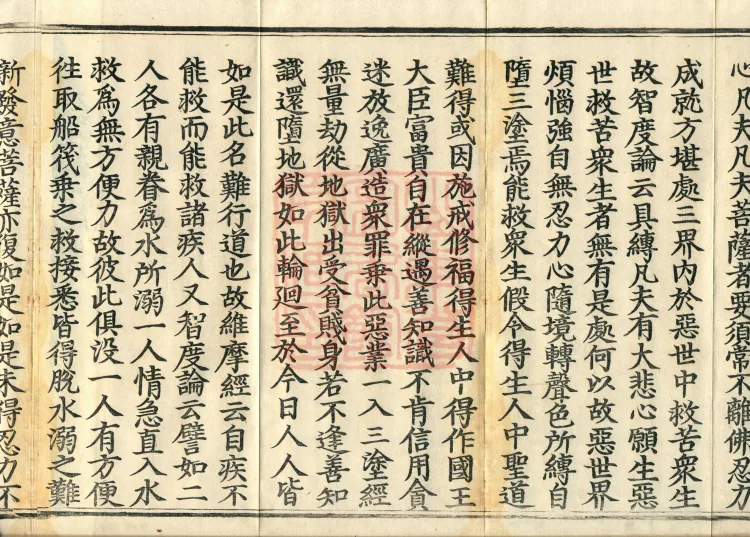 心凡夫凡夫菩薩者要須常不離佛忍力
成就方堪處三界內於惡世中救苦衆生
故智度論云具縛凡夫有大悲心願生惡
世救苦衆生者無有是處何以故惡世界
煩惱強自無忍力心隨境轉聲色所縛自
墮三塗焉能救衆生假令得生人中聖道
難得或因施戒修福得生人中得作國王
大臣富貴自在縱遇善知識不肯信用貪
迷放逸廣造衆罪乗此惡業一入三塗經
無量劫從地獄出受貧賤身若不逢善知
識還墮地獄如此輪廻至於今日人人皆
如是此名難行道也故維摩經云自疾不
能救而能救諸疾人又智度論云譬如二
人各有親眷爲水所溺一人情急直入水
救爲無方便力故彼此俱没一人有方便
徃取船筏乗之救接悉皆得脫水溺之難
新發意菩薩亦復如是如是未得忍力不